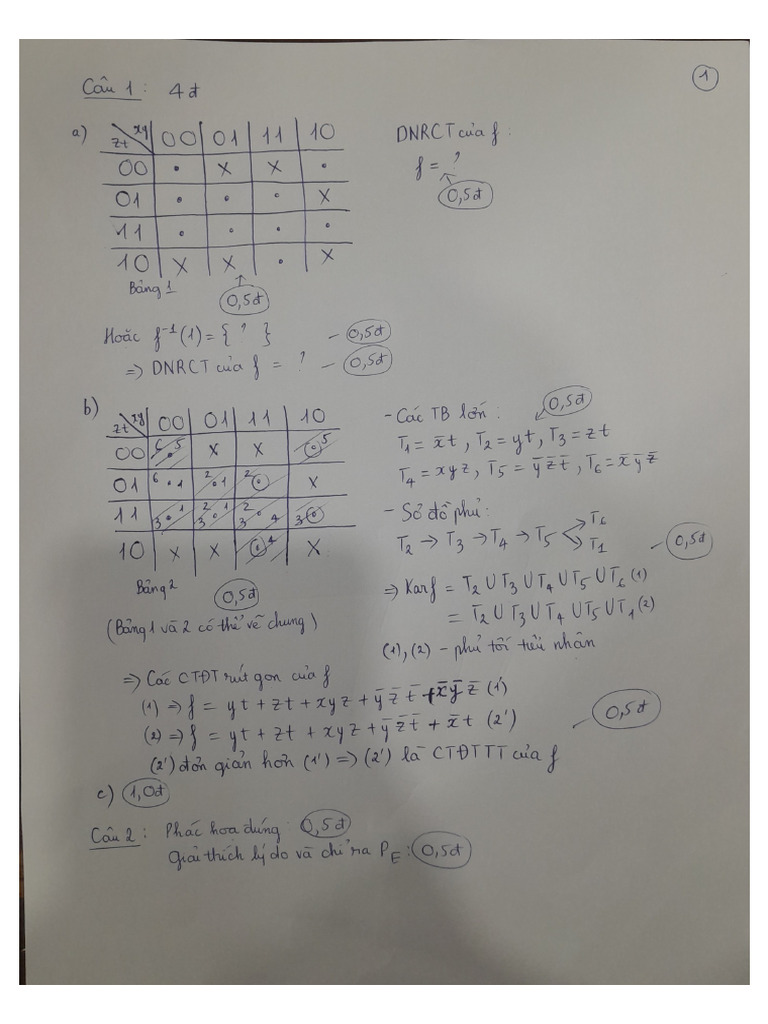 1
Câu 1: 4đ
a)
zt xy 00 01 11 10
00 . x x .
01 . . . x
11 . . . .
10 x x . x
Bảng 1 0,5đ
DNRCT của f:
f = ?
0,5đ
Hoặc f⁻¹(1) = { ? } – 0,5đ
=> DNRCT của f = ? – 0,5đ
b)
zt xy 00 01 11 10
00 6 . 5 x x ⊙ 5
01 6 . 1 2 . 1 2 ⊙ x
11 3 . 1 2 3 . 1 2 3 . 4 3 ⊙
10 x x ⊙ 4 x
Bảng 2 0,5đ
(Bảng 1 và 2 có thể vẽ chung)
- Các TB lớn: 0,5đ
T₁ = x̄t, T₂ = yt, T₃ = zt
T₄ = xyz, T₅ = ȳz̄t̄, T₆ = x̄ȳz̄
- Sơ đồ phủ:
T₂ → T₃ → T₄ → T₅ < T₆
T₁
– 0,5đ
=> Karf = T₂ ∪ T₃ ∪ T₄ ∪ T₅ ∪ T₆ (1)
= T₂ ∪ T₃ ∪ T₄ ∪ T₅ ∪ T₁ (2)
(1), (2) - phủ tối tiểu nhân
=> Các CTĐT rút gọn của f
(1) => f = yt + zt + xyz + ȳz̄t̄ + x̄ȳz̄ (1')
(2) => f = yt + zt + xyz + ȳz̄t̄ + x̄t (2') – 0,5đ
(2') đơn giản hơn (1') => (2') là CTĐTTT của f
c) 1,0đ
Câu 2: Phác hoạ đúng: 0,5đ
Giải thích lý do và chỉ ra P_E: 0,5đ